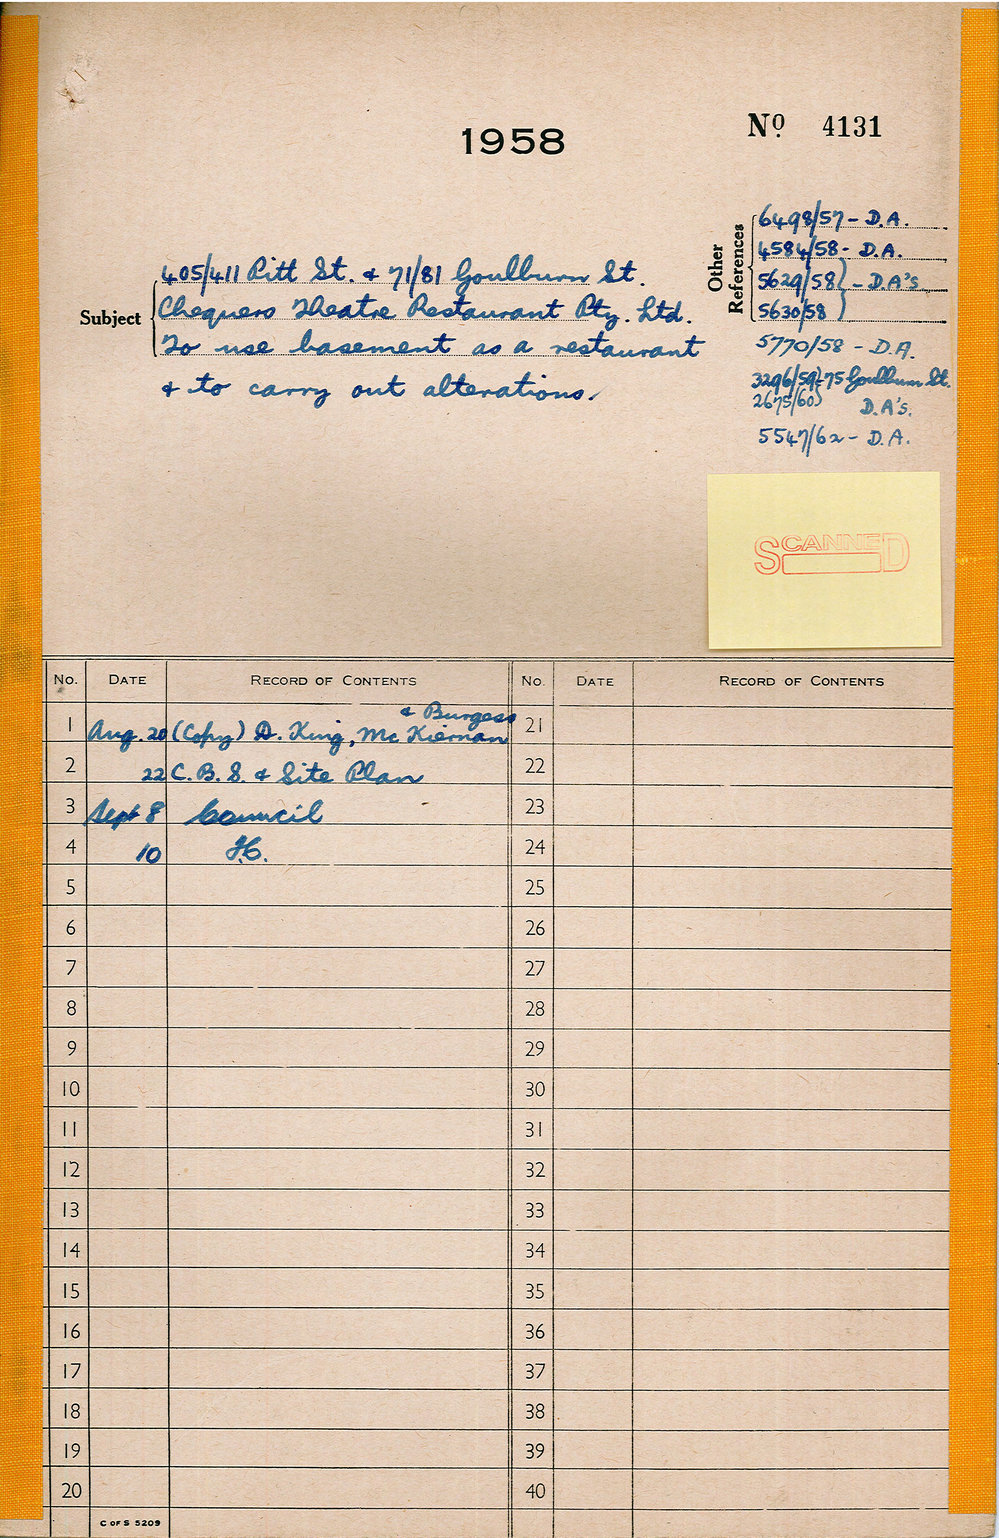 1958
Nº 4131
Other References
6498/57 - D.A.
4584/58 - D.A.
5629/58 } - D.A's
5630/58
5770/58 - D.A.
3296/59 } - 75 Goulburn St.
2675/60 D.A's.
5547/62 - D.A.
Subject
405/411 Pitt St. & 71/81 Goulburn St.
Chequers Theatre Restaurant Pty. Ltd.
To use basement as a restaurant
& to carry out alterations.
SCANNED
No. DATE RECORD OF CONTENTS No. DATE RECORD OF CONTENTS
& Burgess
1 Aug. 20 (Copy) D. King, McKiernan 21
2 22 C.B.S. & Site Plan 22
3 Sept 8 Council 23
4 10 24
5 25
6 26
7 27
8 28
9 29
10 30
11 31
12 32
13 33
14 34
15 35
16 36
17 37
18 38
19 39
20 40
C OF S 5209